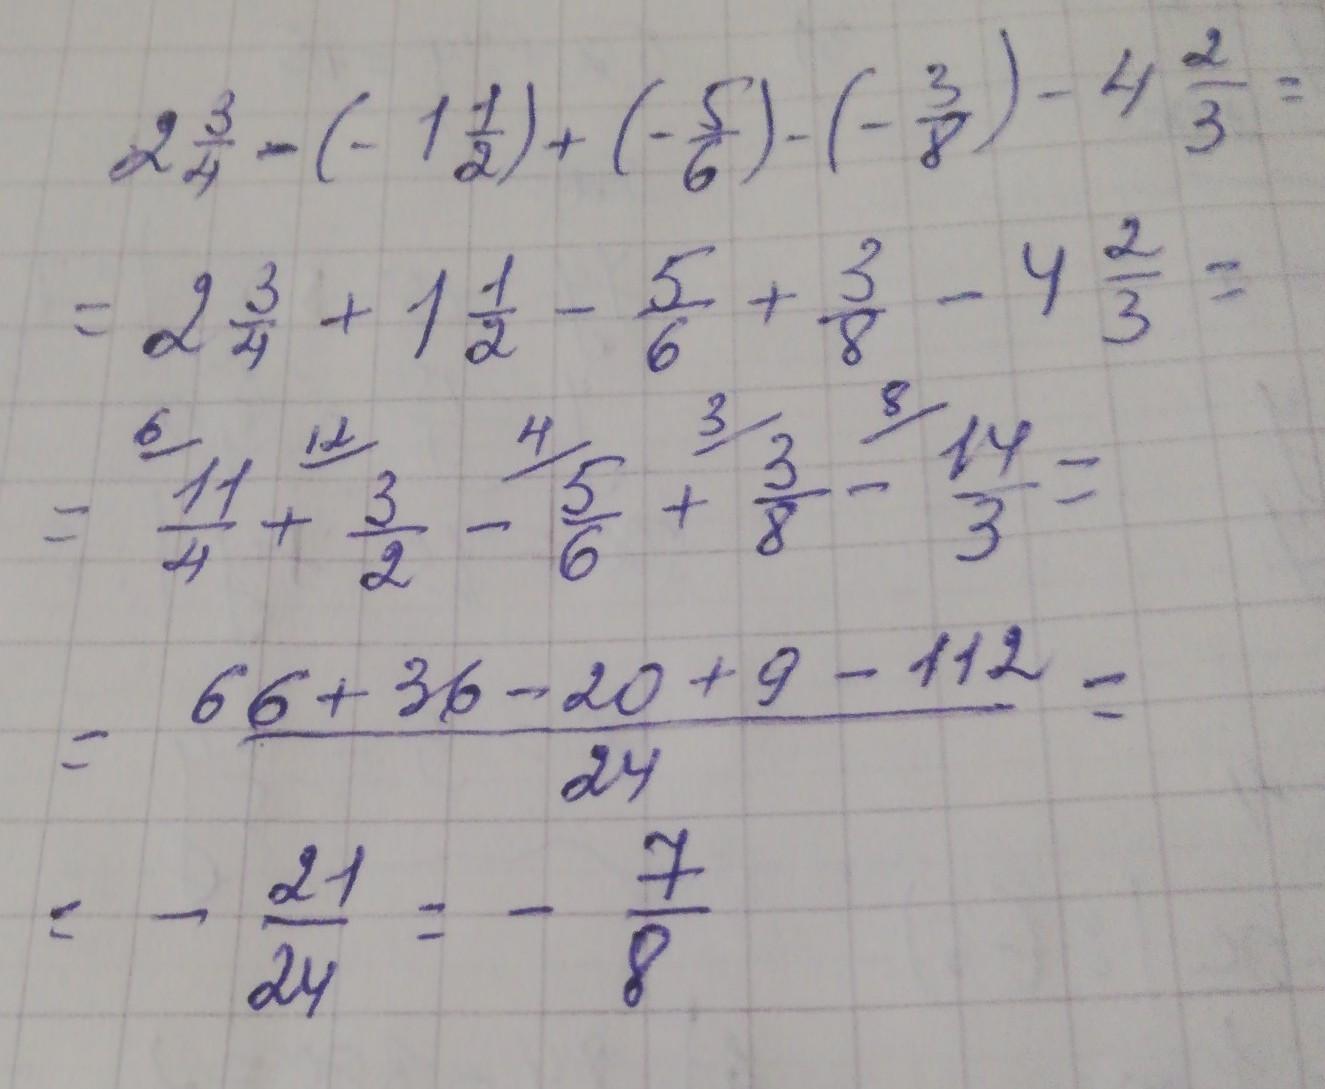 2 3/4 - (- 1 1/2) + (- 5/6) - (- 3/8) - 4 2/3 =
= 2 3/4 + 1 1/2 - 5/6 + 3/8 - 4 2/3 =
6/ 12/ 4/ 3/ 8/
= 11/4 + 3/2 - 5/6 + 3/8 - 14/3 =
= (66 + 36 - 20 + 9 - 112)/24 =
= - 21/24 = - 7/8